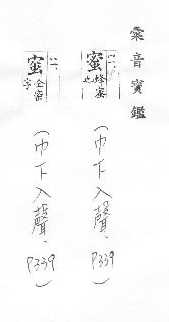 彙音寶鑑
蜜 蜂蜜也
(巾下入聲、P339)
蜜
(巾下入聲、P339)